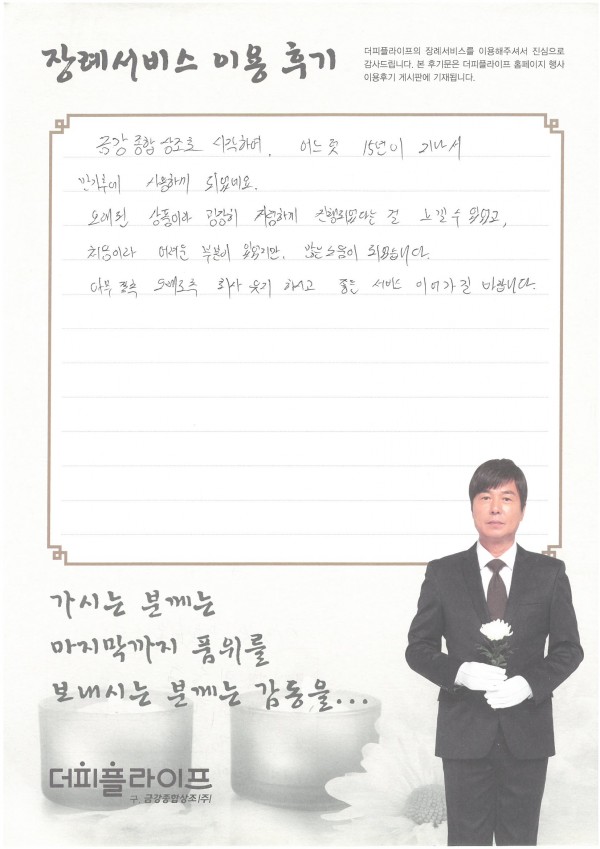 장례서비스 이용 후기
더피플라이프의 장례서비스를 이용해주셔서 진심으로
감사드립니다. 본 후기문은 더피플라이프 홈페이지 행사
이용후기 게시판에 기재됩니다.
금강종합상조로 시작하여, 어느덧 15년이 지나서
만기후에 사용하게 되었네요.
오래된 상품이라 굉장히 저렴하게 진행되었다는 걸 느낄 수 있었고,
처음이라 어려운 부분이 있었지만, 많은 도움이 되었습니다.
아무쪼록 오래도록 회사 유지 하시고 좋은 서비스 이어가길 바랍니다.
가시는 분께는
마지막까지 품위를
보내시는 분께는 감동을...
더피플라이프
구. 금강종합상조(주)